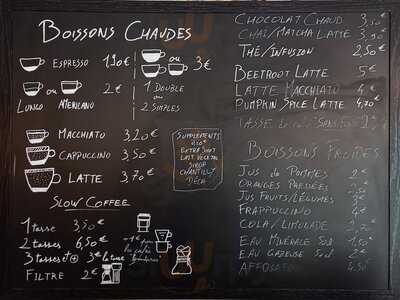 BOISSONS CHAUDES
ESPRESSO 1,90€
ou 3€
1 DOUBLE
ou
2 SIMPLES
ou 2€
LUNGO ou AMERICANO
MACCHIATO 3,20€
CAPPUCCINO 3,50€
LATTE 3,70€
SUPPLÉMENTS
EXTRA SHOT
LAIT VÉGÉTAL
SIROP
CHANTILLY
DÉCA
SLOW COFFEE
1 tasse 3,50€
2 tasses 6,50€
3 tasses et + 3€ la tasse
FILTRE 2€
CHOCOLAT CHAUD 3,50€
CHAI/MATCHA LATTE 3,90€
THÉ/INFUSION 2,50€
BEETROOT LATTE 5€
LATTE MACCHIATO 4€
PUMPKIN SPICE LATTE 4,70€
BOISSONS FROIDES
JUS DE POMMES 2€
ORANGES PRESSÉES
JUS FRUITS/LÉGUMES 3€
FRAPPUCCINO 4€
COLA/LIMONADE 2,70€
EAU MINÉRALE 1,50€
EAU GAZEUSE 2€
AFFOGATO 4,50€